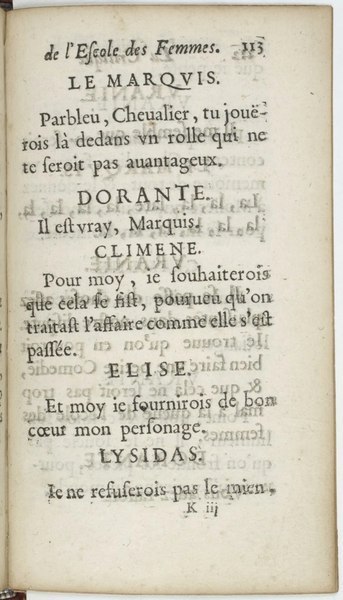 de l'Escole des Femmes. 113
LE MARQVIS.
Parbleu, Cheualier, tu jouë-
rois là dedans vn rolle qui ne
te seroit pas auantageux.
DORANTE.
Il est vray, Marquis.
CLIMENE.
Pour moy, ie souhaiterois
que cela se fist, pourueu qu'on
traitast l'affaire comme elle s'est
passée.
ELISE.
Et moy ie fournirois de bon
cœur mon personage.
LYSIDAS.
Ie ne refuserois pas le mien,
K iij